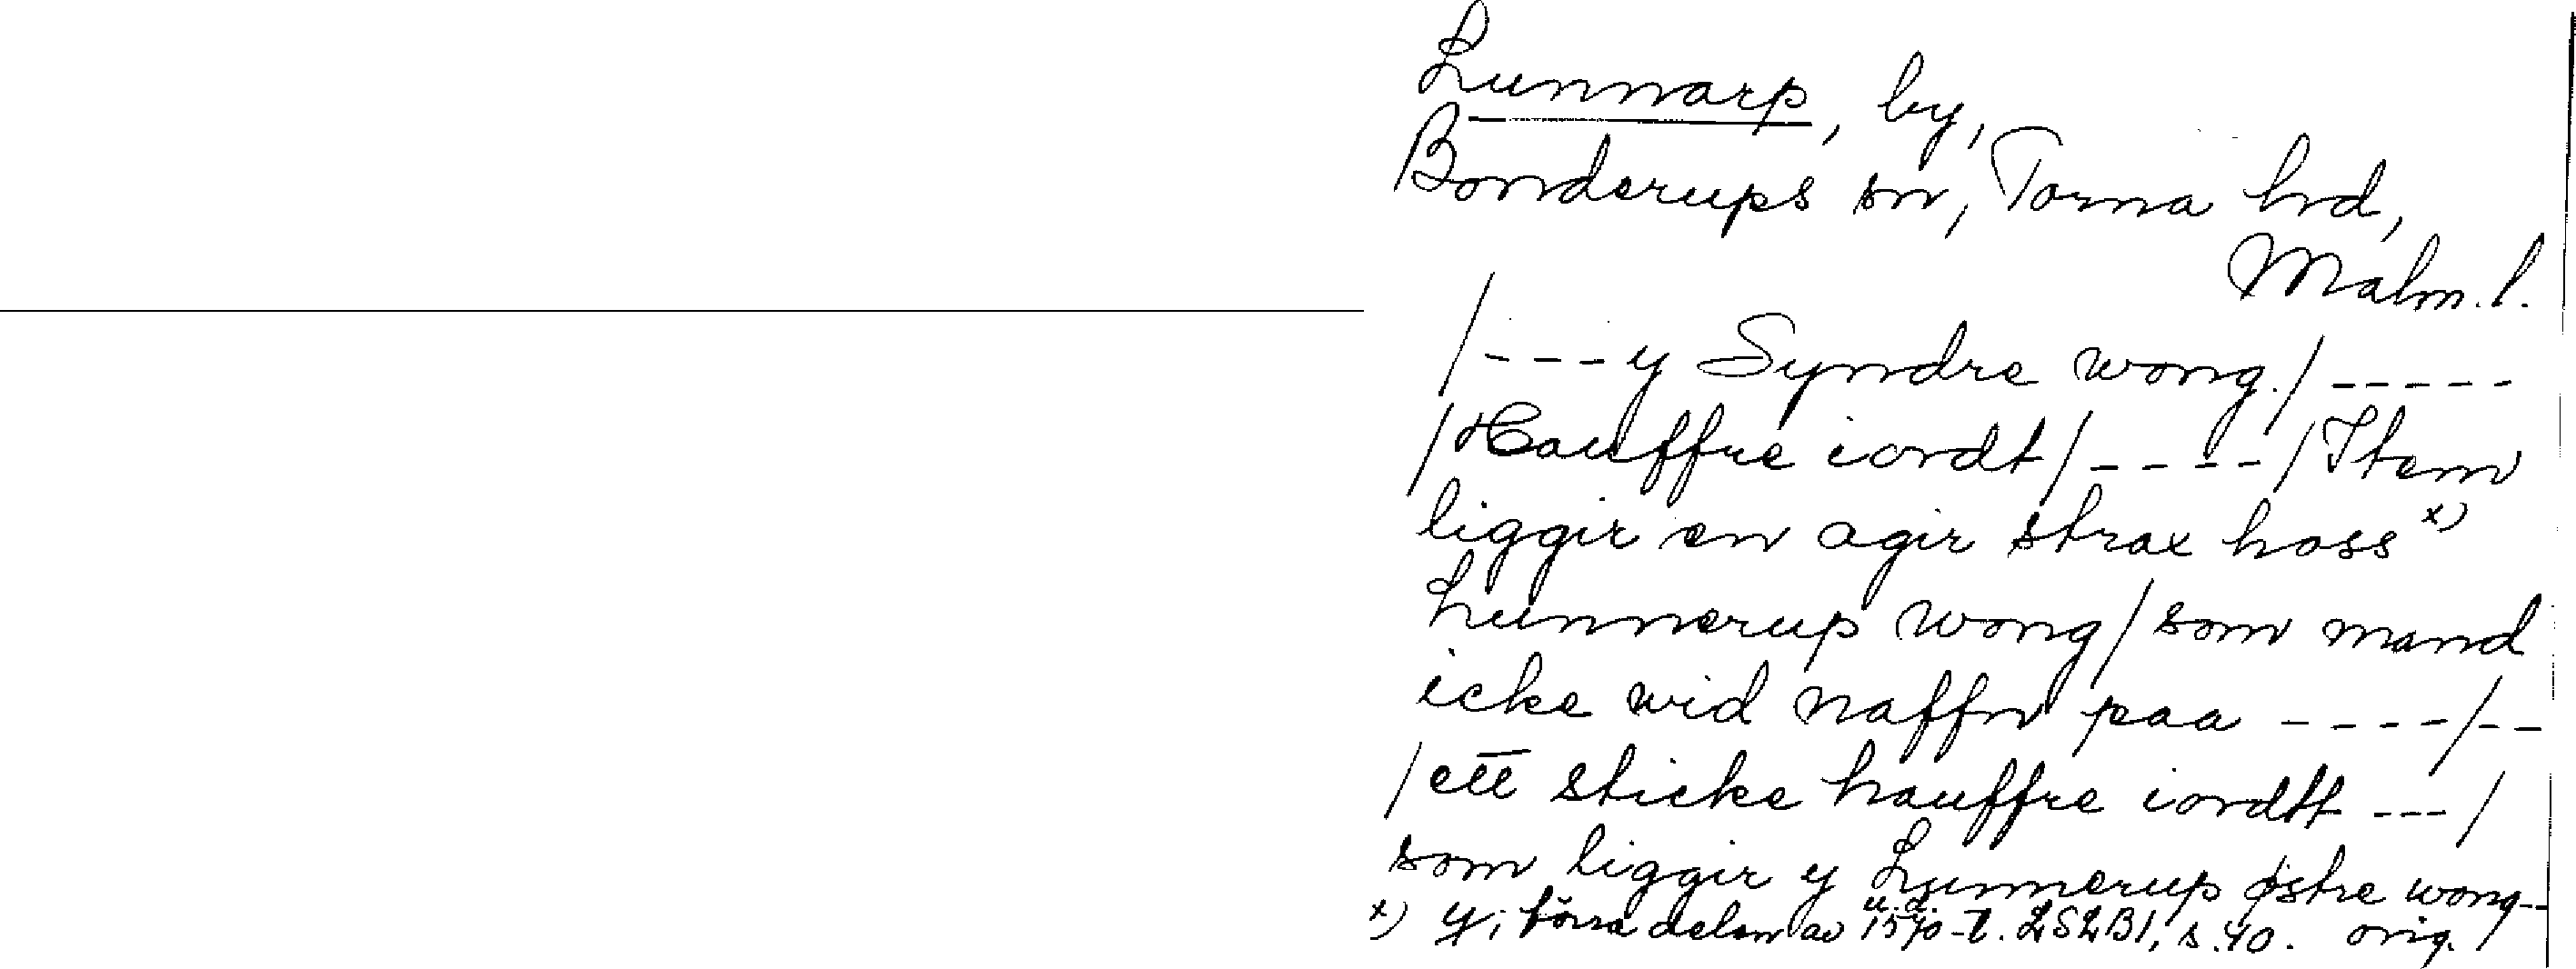 Lunnarp, by,
Bonderups sn, Torna hrd,
Malm. l.
/---y Syndre wong./-----
/Hauffre iordt/----/Item
liggir en agir strax hoss x)
Lunnerup wong/som mand
icke wid naffn paa ----/--
/ett sticke hauffre iordtt ---/
som liggir y Lunnerup østre wong--
u. d.
x) y; förra delen av 1570-t. LSLB1, s. 40. orig.